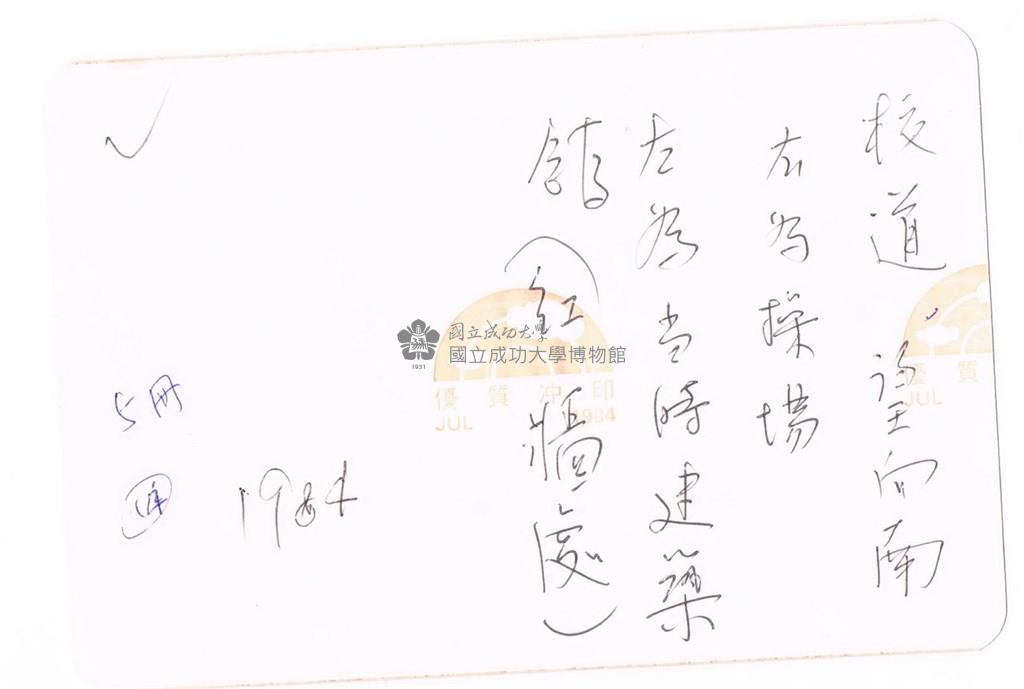 校道 望向南
右為操場
左為当時建築
館(紅牆處)
1984
5冊
國立成功大學
國立成功大學博物館
1931
優質冲印
JUL 1984
優質
JUL